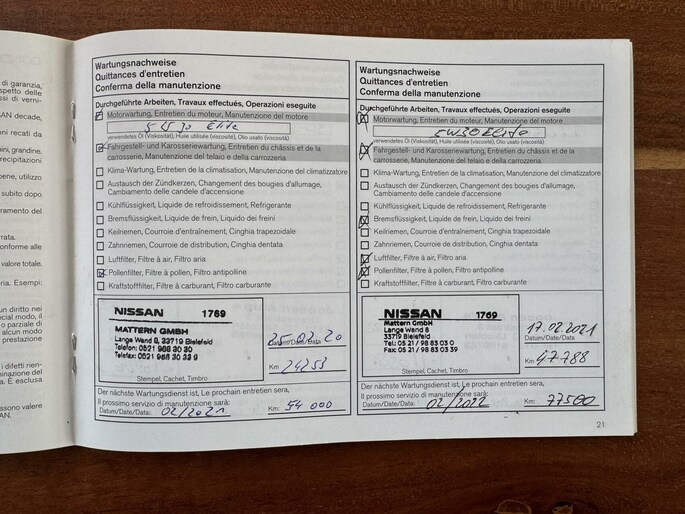 di garanzia,
spetto delle
ssi di verni-
AN decade,
ni recati da
ni, grandine.
recipitazioni
bene, utilizzo
subito dopo
ramento del
rrata.
onforme alle
valore totale.
ria. Esempi:
un diritto nei
ecial modo, il
o parziale di
alcun modo
prestazione
i difetti rien-
minazione del
È esclusa
ssono valere
AN.
Wartungsnachweise
Quittances d'entretien
Conferma della manutenzione
Durchgeführte Arbeiten, Travaux effectués, Operazioni eseguite
Motorwartung, Entretien du moteur, Manutenzione del motore
5W30 Elite
verwendetes Öl (Viskosität), Huile utilisée (viscosité), Olio usato (viscosità)
Fahrgestell- und Karosseriewartung, Entretien du châssis et de la
carrosserie, Manutenzione del telaio e della carrozzeria
Klima-Wartung, Entretien de la climatisation, Manutenzione del climatizzatore
Austausch der Zündkerzen, Changement des bougies d'allumage,
Cambiamento delle candele d'accensione
Kühlflüssigkeit, Liquide de refroidissement, Refrigerante
Bremsflüssigkeit, Liquide de frein, Liquido dei freini
Keilriemen, Courroie d'entraînement, Cinghia trapezoidale
Zahnriemen, Courroie de distribution, Cinghia dentata
Luftfilter, Filtre à air, Filtro aria
Pollenfilter, Filtre à pollen, Filtro antipolline
Kraftstofffilter, Filtre à carburant, Filtro carburante
NISSAN 1769
MATTERN GMBH
Lange Wand 8, 33719 Bielefeld
Telefon: 0521 988 30 30
Telefax: 0521 988 30 39
25.02.20
Datum/Date/Data:
Km: 24253
Stempel, Cachet, Timbro
Der nächste Wartungsdienst ist, Le prochain entretien sera,
Il prossimo servizio di manutenzione sarà:
Datum/Date/Data: 02/2021 Km: 54 000
Wartungsnachweise
Quittances d'entretien
Conferma della manutenzione
Durchgeführte Arbeiten, Travaux effectués, Operazioni eseguite
Motorwartung, Entretien du moteur, Manutenzione del motore
5W30 Elite
verwendetes Öl (Viskosität), Huile utilisée (viscosité), Olio usato (viscosità)
Fahrgestell- und Karosseriewartung, Entretien du châssis et de la
carrosserie, Manutenzione del telaio e della carrozzeria
Klima-Wartung, Entretien de la climatisation, Manutenzione del climatizzatore
Austausch der Zündkerzen, Changement des bougies d'allumage,
Cambiamento delle candele d'accensione
Kühlflüssigkeit, Liquide de refroidissement, Refrigerante
Bremsflüssigkeit, Liquide de frein, Liquido dei freini
Keilriemen, Courroie d'entraînement, Cinghia trapezoidale
Zahnriemen, Courroie de distribution, Cinghia dentata
Luftfilter, Filtre à air, Filtro aria
Pollenfilter, Filtre à pollen, Filtro antipolline
Kraftstofffilter, Filtre à carburant, Filtro carburante
NISSAN 1769
Mattern GmbH
Lange Wand 8
33719 Bielefeld
Tel.: 05 21 / 98 83 03 0
Fax: 05 21 / 98 83 03 39
17.02.2021
Datum/Date/Data:
Km: 47788
Stempel, Cachet, Timbro
Der nächste Wartungsdienst ist, Le prochain entretien sera,
Il prossimo servizio di manutenzione sarà:
Datum/Date/Data: 02/2022 Km: 77500
21